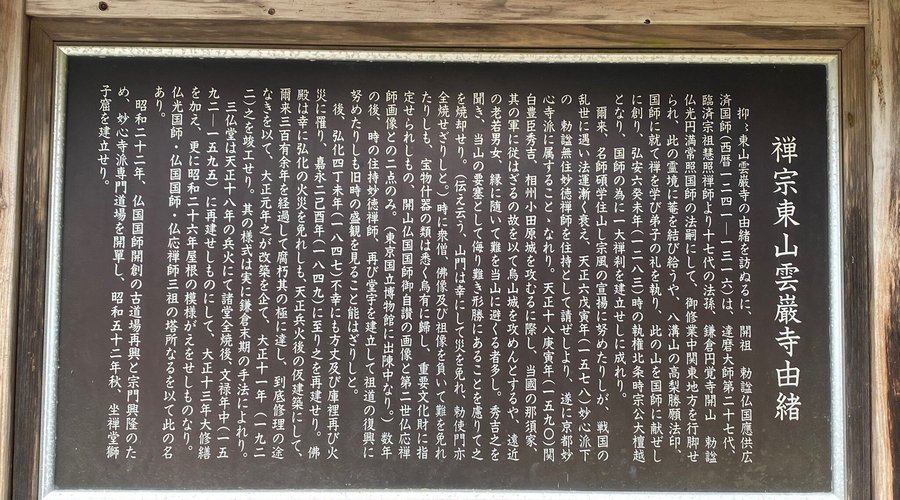 禅宗東山雲巖寺由緒
抑々東山雲巖寺の由緒を訪ぬるに、開祖 勅謚仏国応供広
済国師(西暦一二四一―一三一六)は、達磨大師第二十七代、
臨済宗祖慧照禅師より十七代の法孫、鎌倉円覚寺開山 勅謚
仏光円満常照国師の法嗣にして、御修業中関東地方を行脚せ
られ、此の霊境に一菴を結び給うや、八溝山の高梨勝願法印、
国師に就て禅を学び弟子の礼を執り、此の山を国師に献ぜし
に創り、弘安六癸未年(一二八三)時の執権北条時宗公大檀越
となり、国師の為に一大禅刹を建立せしに成れり。
爾来、名師碩学住山し宗風の宣揚に努めたりしが、戦国の
乱世に遇い法運漸く衰え、天正六戊寅年(一五七八)妙心派下
の 勅謚無住妙徳禅師を住持として請ぜしより、遂に京都妙
心寺派に属すること・なれり。天正十八庚寅年(一五九〇)関
白豊臣秀吉、相州小田原城を攻むるに際し、当国の那須家、
其の軍に従はざるの故を以て烏山城を攻めんとするや、遠近
の老若男女、縁に随いて難を当山に避くる者多し。秀吉之を
聞き、当山の要塞として侮り難き形勝にあることを慮りて之
を焼却せり。(伝え云う、山門は幸にして災を免れ、勅使門亦
全焼せざりしと。)時に衆僧、佛像及び祖像を負いて難を免れ
たりしも、宝物什器の類は悉く烏有に歸し、重要文化財に指
定せられしもの、開山仏国国師御自讃の画像と第二世仏応禅
師画像との二点のみ。(東京国立博物館に出陳中なり。)数年
の後、時の住持妙徳禅師、再び堂宇を建立して祖道の復興に
努めたりしも旧時の盛観を見ること能はざりしと。
後、弘化四丁未年(一八四七)不幸にも方丈及び庫裡再び火
災に罹り、嘉永二己酉年(一八四九)に至り之を再建せり。佛
殿は幸に弘化の火災を免れしも、天正兵火後の仮建築にして、
爾来三百有余年を経過して腐朽其の極に達し、到底修理の途
なきを以て、大正元年之が改築を企て、大正十一年(一九二
二)之を竣工せり。其の様式は実に鎌倉末期の手法によれり。
三仏堂は天正十八年の兵火にて諸堂全焼後、文禄年中(一五
九二―一五九五)に再建せしものにして、大正十三年大修繕
を加え、更に昭和二十六年屋根の模様がえをせしものなり。
仏光国師・仏国国師・仏応禅師三祖の塔所なるを以て此の名
あり。
昭和二十二年、仏国国師開創の古道場再興と宗門興隆のた
め、妙心寺派専門道場を開單し、昭和五十二年秋、坐禅堂獅
子窟を建立せり。